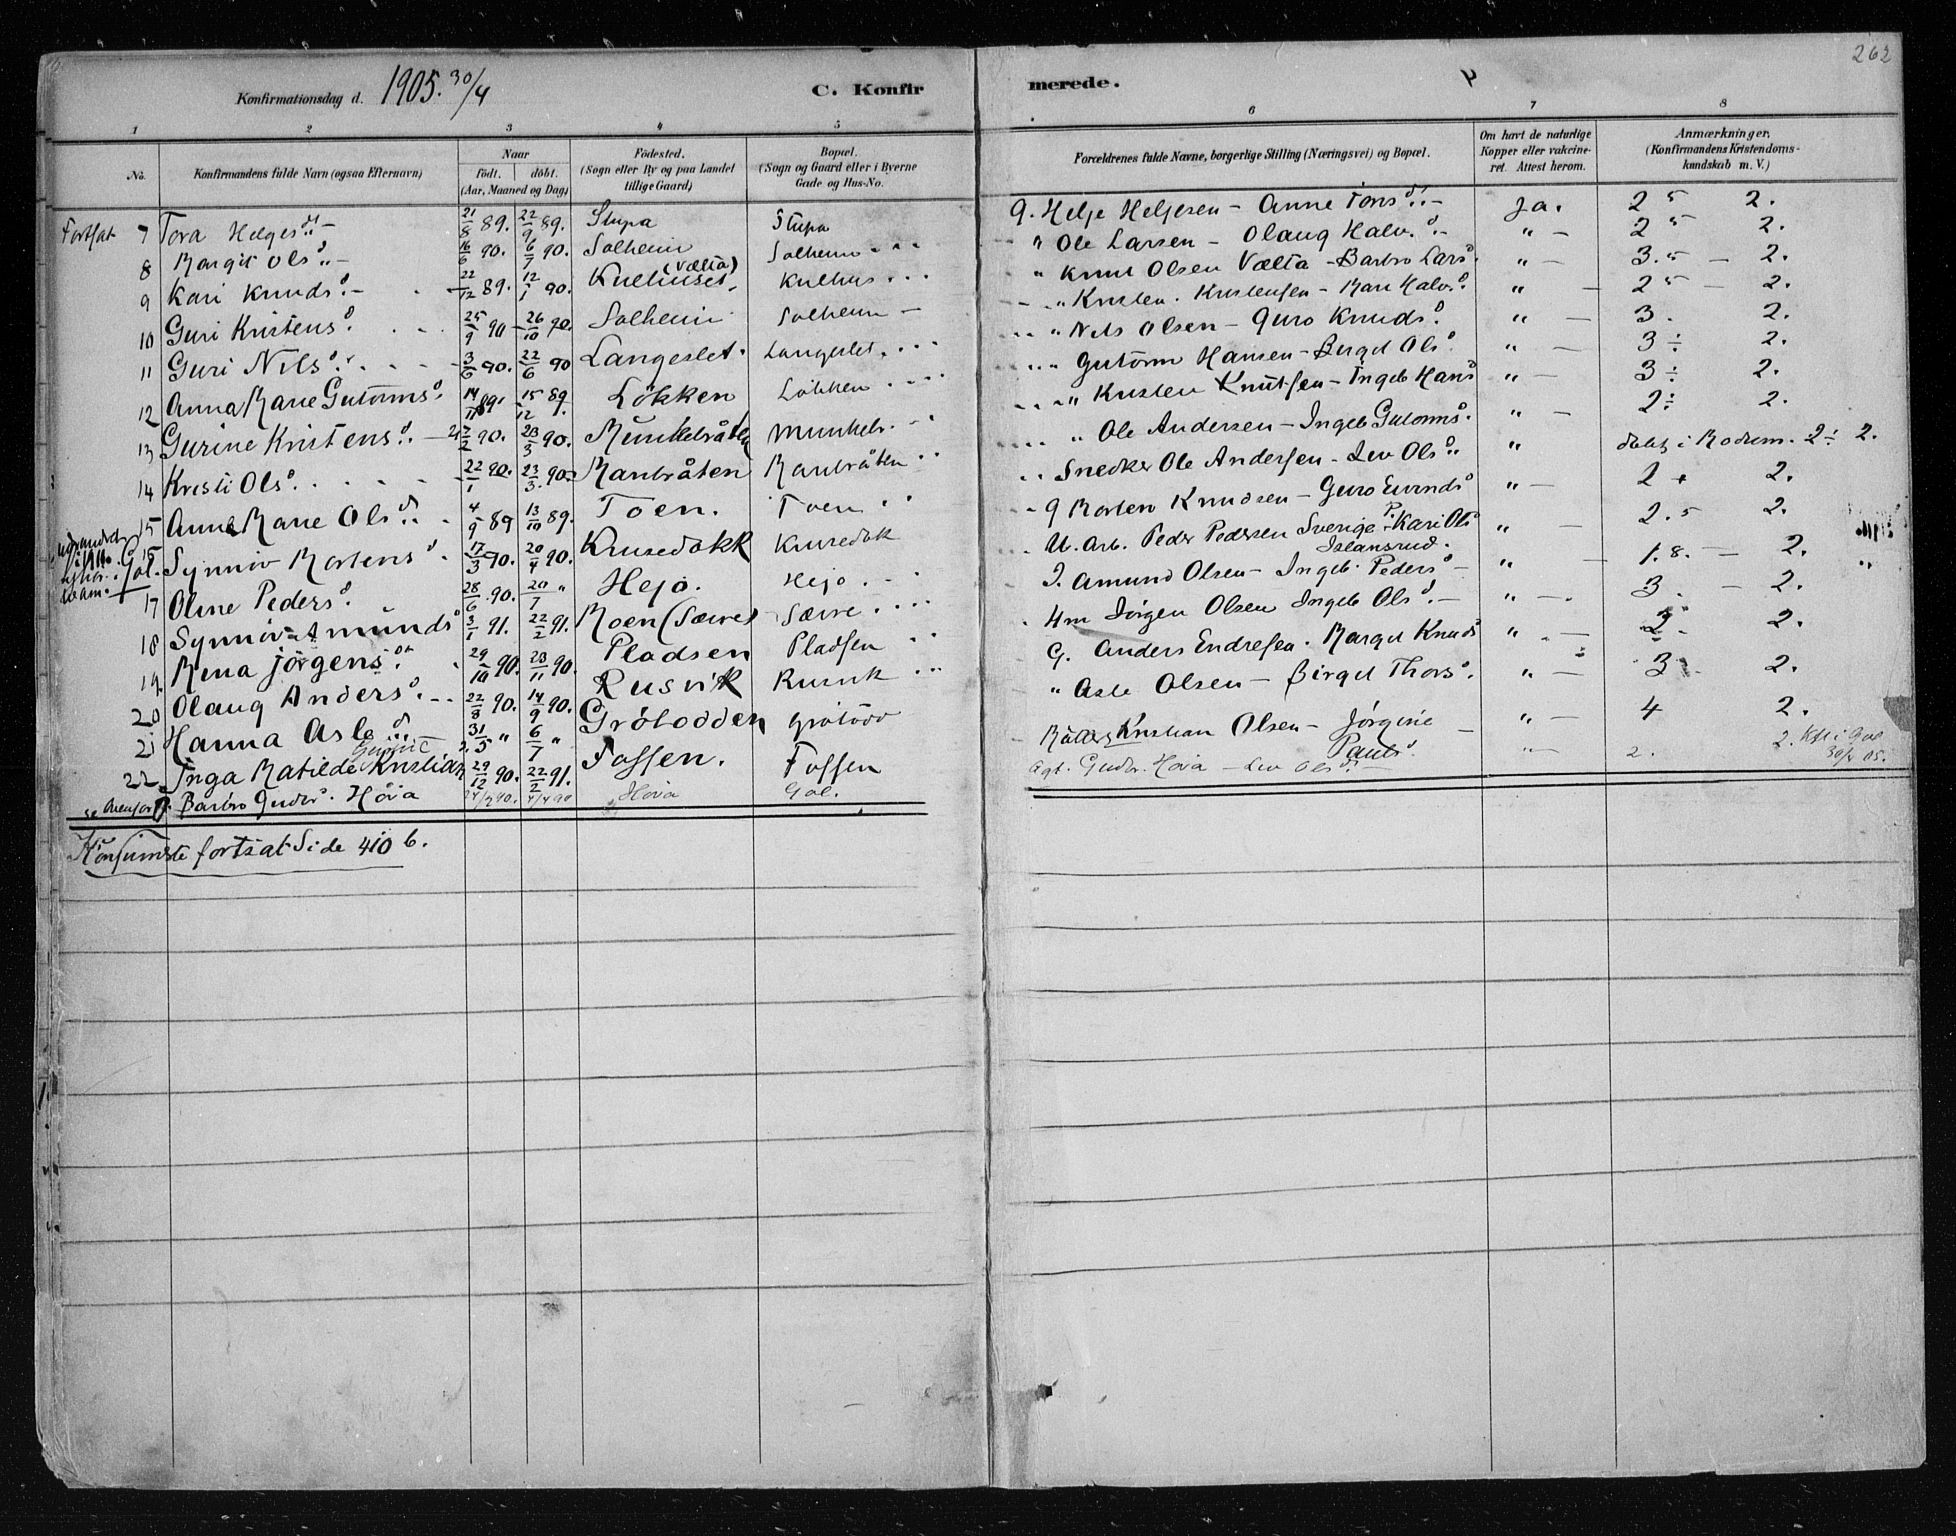 262
Konfirmationsdag d. 1905. 30/4 C. Konfirmerede.
1 2 3 4 5 6 7 8
No. Konfirmandens fulde Navn (ogsaa Efternavn) Naar födt. döbt. (Aar, Maaned og Dag) Födested. (Sogn eller By og paa Landet tillige Gaard) Bopæl. (Sogn og Gaard eller i Byerne Gade og Hus-No. Forældrenes fulde Navne, borgerlige Stilling (Næringsvei) og Bopæl. Om havt de naturlige Kopper eller vakcineret. Attest herom. Anmærkninger, (Konfirmandens Kristendomskundskab m. V.)
Fortsat 7 Tora Helgesd. 21/8 89. 22/9 89. Stupa Stupa G. Helje Heljesen - Anne Torsd. Ja. 2 5 2.
8 Margit Olsd. 16/6 90. 6/7 90. Solheim Solheim " Ole Larsen - Olaug Halv.d. " - 2 5 2.
9 Kari Knudsd. 22/12 89. 12/1 90. Kulhuset (Vælta) Kulhus " Knut Olsen Vælta - Barbro Larsd. " - 3.5 - 2.
10 Guri Kristensd. 25/9 90 26/10 90. Solheim Solheim " Kristen Kristensen - Mari Halv.d. " - 2 5 - 2.
11 Guri Nilsd. 3/6 90. 22/6 90 Langeslet Langeslet " Nils Olsen - Guro Knudsd. " - 3. 2.
12 Anna Marie Gutormsd. 14/11 89 15/12 89. Lökken Lökken " Gutorm Hansen - Birgit Olsd. " - 3 ÷ 2.
13 Gurine Kristensd. 2/2 90. 23/3 90. Munkebråten Munkebr. " Kristen Knutsen - Ingeb Hansd " - 3 ÷ 2.
14 Kristi Olsd. 22/1 90. 23/3 90. Manbråten Manbråten " Ole Andersen - Ingeb Gutormsd. " - 2 ÷ 2.
15 Anne Marie Olsd. 4/9 89 13/10 89. Toen. Toen Snedker Ole Andersen - Liv Olsd. " døbt i Modum. 2 ÷ 2.
16 Synnöv Mortensd. 17/3 90. 20/4 90. Knusedokk Knusedok G Morten Knudsen - Guro Eivindsd " - 2 + 2.
17 Oline Pedersd. 28/6 90. 20/7 " Hejo. Hejo U. Arb. Peder Pedersen Sverige - P. Kari Olsd Islansrud. " - 2.5 2.
18 Synnöv Amundsd 3/1 91. 22/2 91. Moen (Sævre) Sævre J. Amund Olsen - Ingeb. Pedersd " - 1.8. - 2.
19 Mina Jörgensd. 29/10 90. 23/11 90. Pladsen Pladsen Hm Jörgen Olsen Ingeb Olsd. " - 3 - 2.
20 Olaug Andersd. 22/8 90. 14/9 90. Rusvik Rusvik G. Anders Endresen. Margit Knudsd " - 2. 2.
21 Hanna Asled. 31/5 " 6/7 " Grötodden Grötodd " Asle Olsen - Birgit Thorsd. " - 3 2.
22 Inga Matilde Kristians 29/12 90. 22/2 91. Fossen. Fossen Kristian Olsen - Jörgine Paulsd. " - 4 2.
Barbro Gudbr. Höva 4/4 90 Hova Gol. Agt. Gudbr. Hova - Liv Olsd. " - 2. 2. Kft i Gol 30/4 05.
Konfirmerte fortsat Side 410 b.